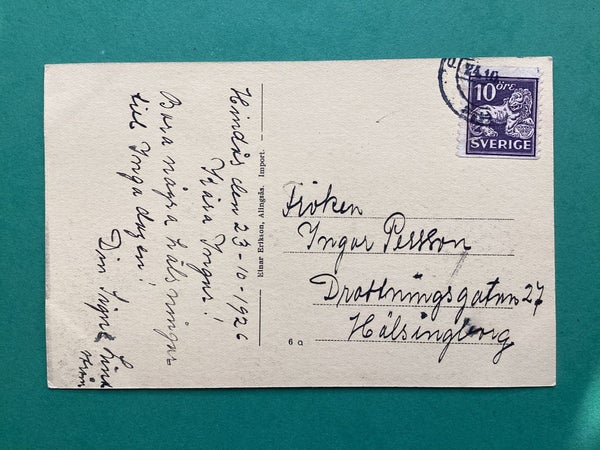 Hindås den 23-10-1926
Kära Ingar!
Bara några hälsningar
till Inga dagen!
Din Signe Lind
ström
Einar Erikson, Alingsås. Import.
6 a
23.10
10 ÖRE
SVERIGE
Fröken
Ingar Persson
Drottningsgatan 27
Hälsingborg